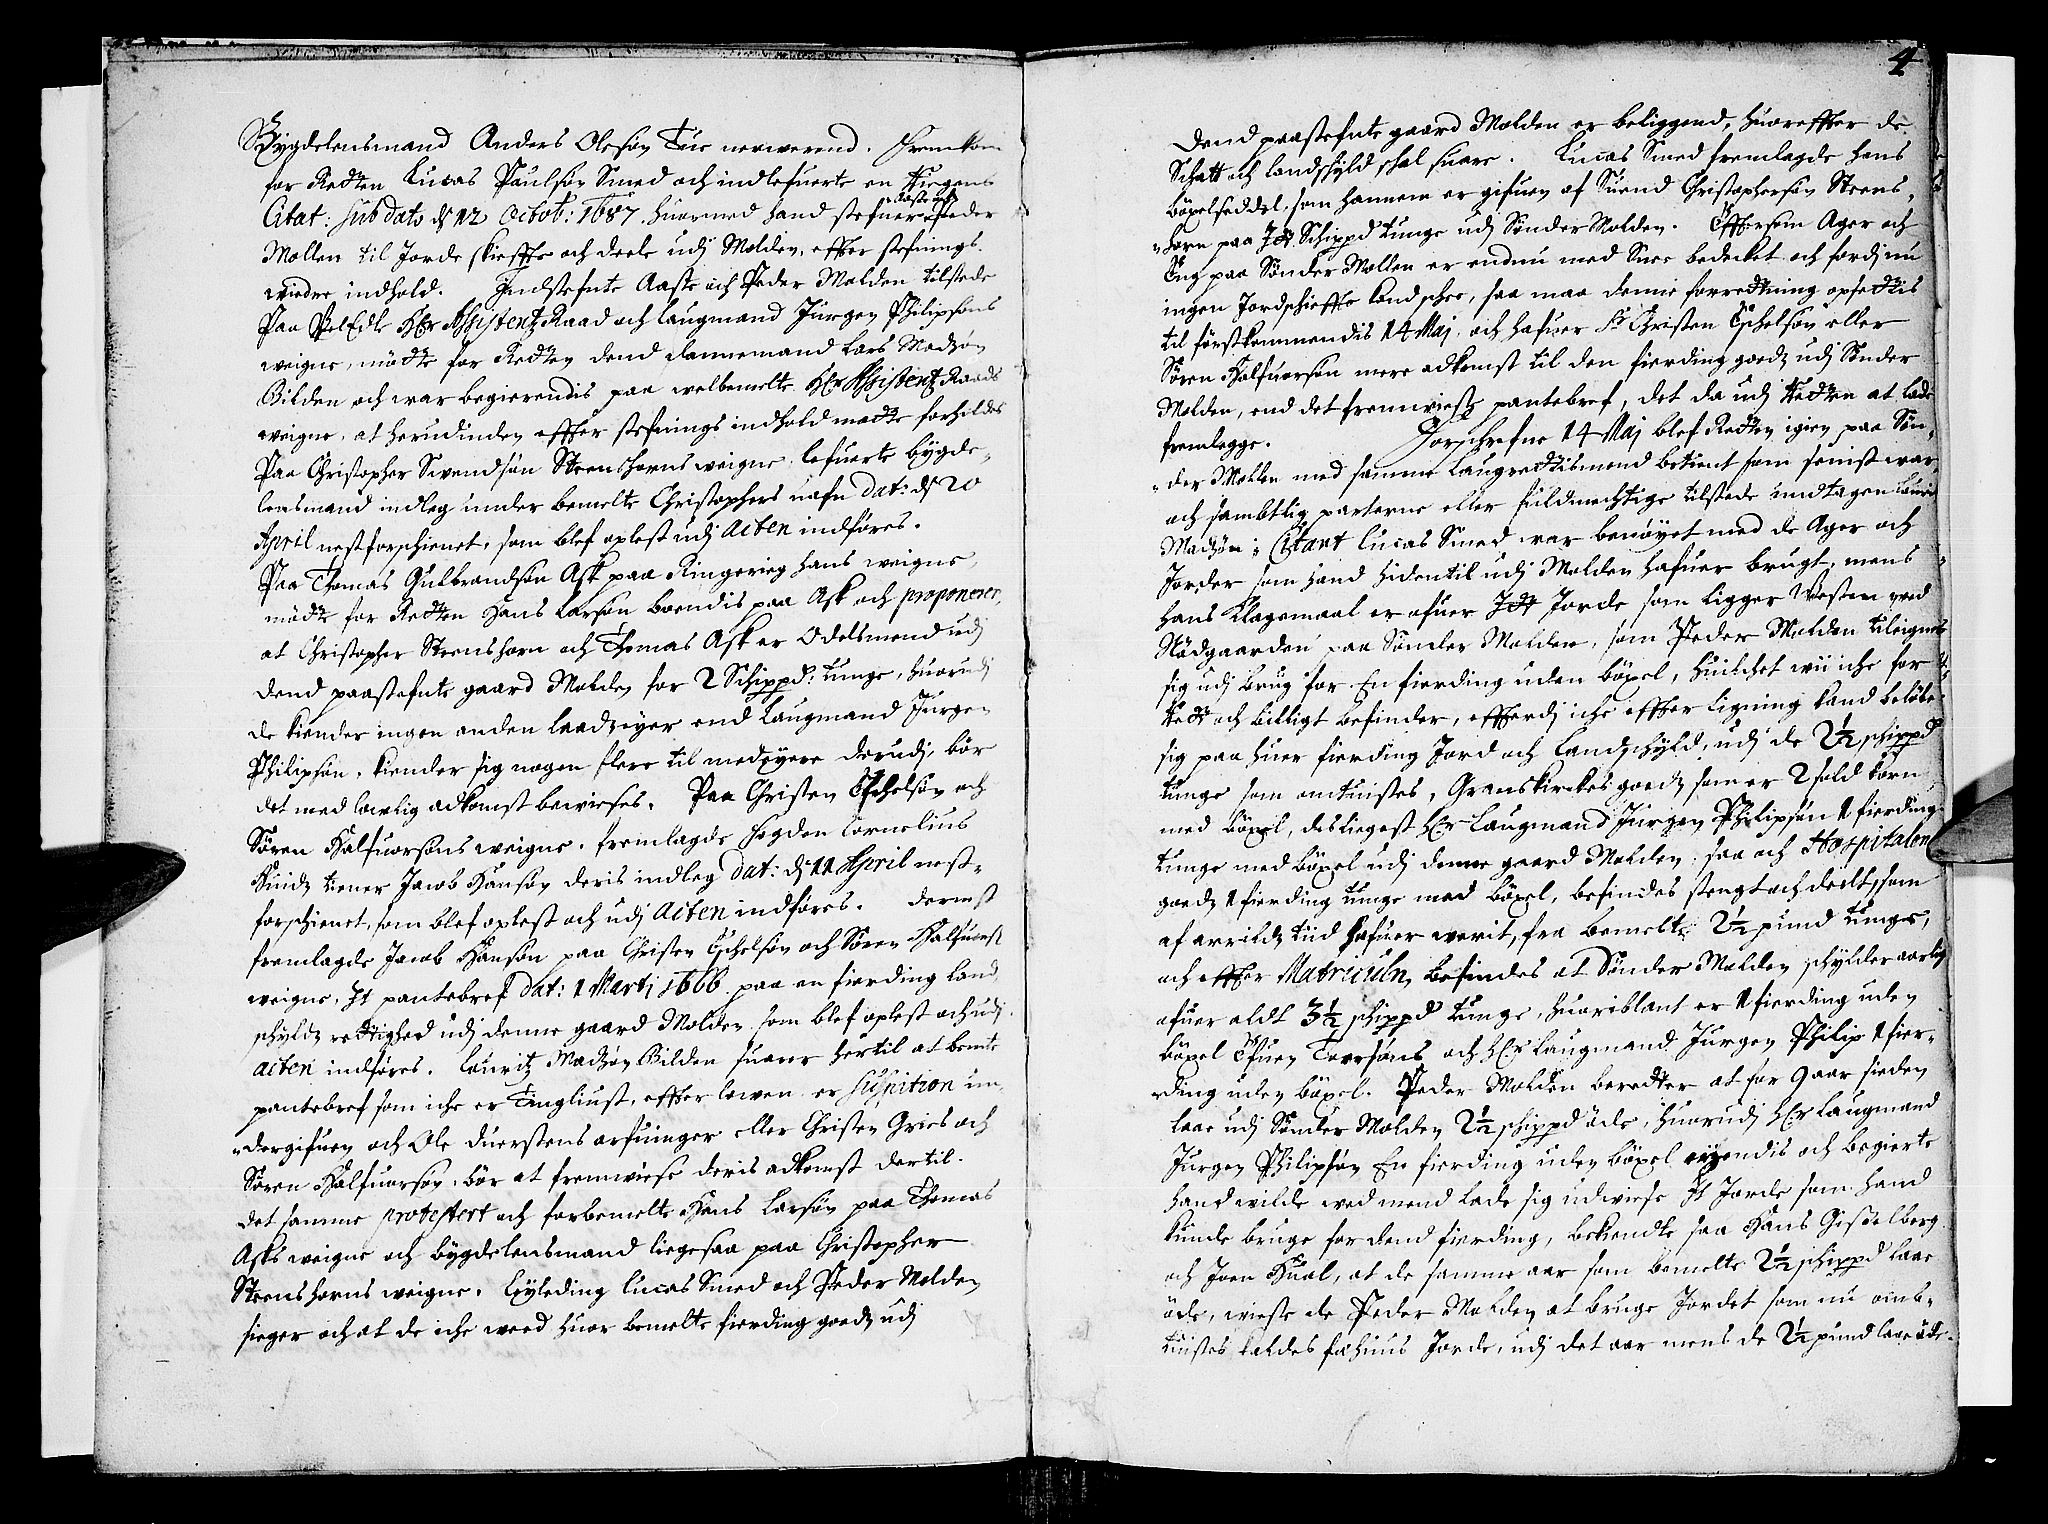 Bygdelensmand Anders Olesøn Tue nerwerend. Fremkom
for Retten Lucas Paulsøn Smed och indlefuerte en Kiegens
Citat: sub dato d 12 Octob: 1687 huormed hand stefner Aaste och Peder
Mollen til Jorde skiffte och deele udj Molden, effter stefnings
widre indhold. Indstefnte Aaste och Peder Molden tilstede
Paa VelEdle Hr Assistentz Raad och Laugmand Jürgen Philipsøns
weigne, mødte for Retten dend dannemand Lars Madsøn
Bilden och war begierendis paa welbemelte Hr Assistentz Raads
weigne, at herudinden effter stefnings indhold motte forholdes
Paa Christopher Swendsøn Steenshorns weigne lefuerte bygde-
lensmand indleg under bemelte Christophers nafn dat: d 20
April nestforschienet, som blef oplest udj Acten indføres.
Paa Thomas Gulbrandsøn Ask paa Ringerieg hans weigne,
mødte for Retten Hans Larsøn boendis paa Ask och proponerer,
at Christopher Steenshorn och Thomas Ask er Odelsmend udj
dend paastefnte gaard Molden for 2 Schippd: tunge, huorudj
de kiender ingen anden laadzeyer end Laugmand Jürgen
Philipsøn, kiender sig nogen flere til medeyere derudj, bør
det med lowlig adkomst bewieses. Paa Christen Eschelsøn och
Søren Halfuorsøns weigne, fremlagde Hogden Cornelius
tiener Jacob Hansøn deris indleg dat: d 11 April nest-
forschienet, som blef oplest och udj Acten indføres. dernest
fremlagde Jacob Hansøn paa Christen Eschelsøn och Søren Halfuorsl
weigne, It pantebref dat: 1 Martj 1666 paa en fierding land
schyldz rettighed udj denne gaard Molden som blef oplest och udj
acten indføres. Lauritz Madsøn Bilden suarer hertil at bemte
pantebref som iche er Tingliust, effter lowen er suspition un
dergifuen och Ole Duerstens arfuinger eller Christen Gries och
Søren Halfuorsøn, bør at fremwiese deris adkomst dertil.
det samme protestert och forbemelte Hans Larsøn paa Thomas
Asks weigne och bygdelensmand liegesaa paa Christopher
Steenshorns weigne. Eyleding Lucas Smed och Peder Molden
sieger och at de iche weed huor bemelte fierding goedz udj
4
dend paastefnte gaard Molden er beliggend, huoreffter de
Schatt och landschyld schal suare. Lucas Smed fremlagde hans
bøxelseddel, som hannem er gifuen af Suend Christophersøn Steens-
horn paa Schippd tunge udj Sønder Molden. Effter som Ager och
Eng paa Sønder Mollen er endnu med Snee bedecket och fordj nu
ingen Jordschiffte kand schee, saa maa denne forretning opsettis
til førstkommendis 14 Maj, och hafuer Sr Christen Eschelsøn eller
Søren Halfuorsøn mere adkomst til den fierding goedz udj Sønder
Molden, end det fremwieste pantebref, det da udj Retten at lade
fremlegge. Forschrefne 14 Maj blef Retten igien paa Søn-
der Mollen med samme Laugrettismend betient som sidst war
och sambtlig parterne eller fuldmechtige tilstede undtagen Lauritz
Madsøn; Citant Lucas Smed war benøyet med de Ager och
Jorder som hand hidentil udj Molden hafuer brugt, mens
hans Klagemaal er ofuer Jorde som ligger Westen ved
Nødgaarden paa Sønder Molden, som Peder Molden tileigner
sig udj brug for En fierding uden bøxel, huilchet wii iche for
Rett och billigt befinder, efferdj iche effter ligning kand beløbe
sig paa huer fierding Jord och Landschyld, udj de 2½ schippd
tunge som omtuistes, Granskirkes goedz som er 2 sold korn
med bøxel, desliegest Hr Laugmand Jürgen Philipsøn 1 fierding
tunge med bøxel udj denne gaard Molden, saa och Hospitalens
goedz 1 fierding tunge med bøxel, befindes stengt och deelt, som
af arrildz tiid hafuer werit, fra bemelte 2½ pund tunge,
och effter Matriculn, befindes at Sønder Molden schylder aarlig
ofuer aldt 3½ schippd tunge, huoriblant er 1 fierding uden
bøxel Efuen Toersøns och Hr Laugmand Jürgen Philip 1 fier-
ding uden bøxel. Peder Molden beretter at for 9 aar sieden
laae udj Sønder Molden 2½ schippd øde, huorudj Hr Laugmand
Jurgen Philipsøn En fierding uden bøxel eyendis och begierte
hand wilde wed mend lade sig udwiese It Jorde som hand
kunde bruge for dend fierding, bekiendte saa Hans Gisselberg
och Joen Hual, at de samme aar som bemelte 2½ schippd laae
øde, wieste de Peder Molden at bruge Jordet som nu omb-
tuistes kaldes fæhuus Jorde, udj det aar mens de 2½ pund laae øde.